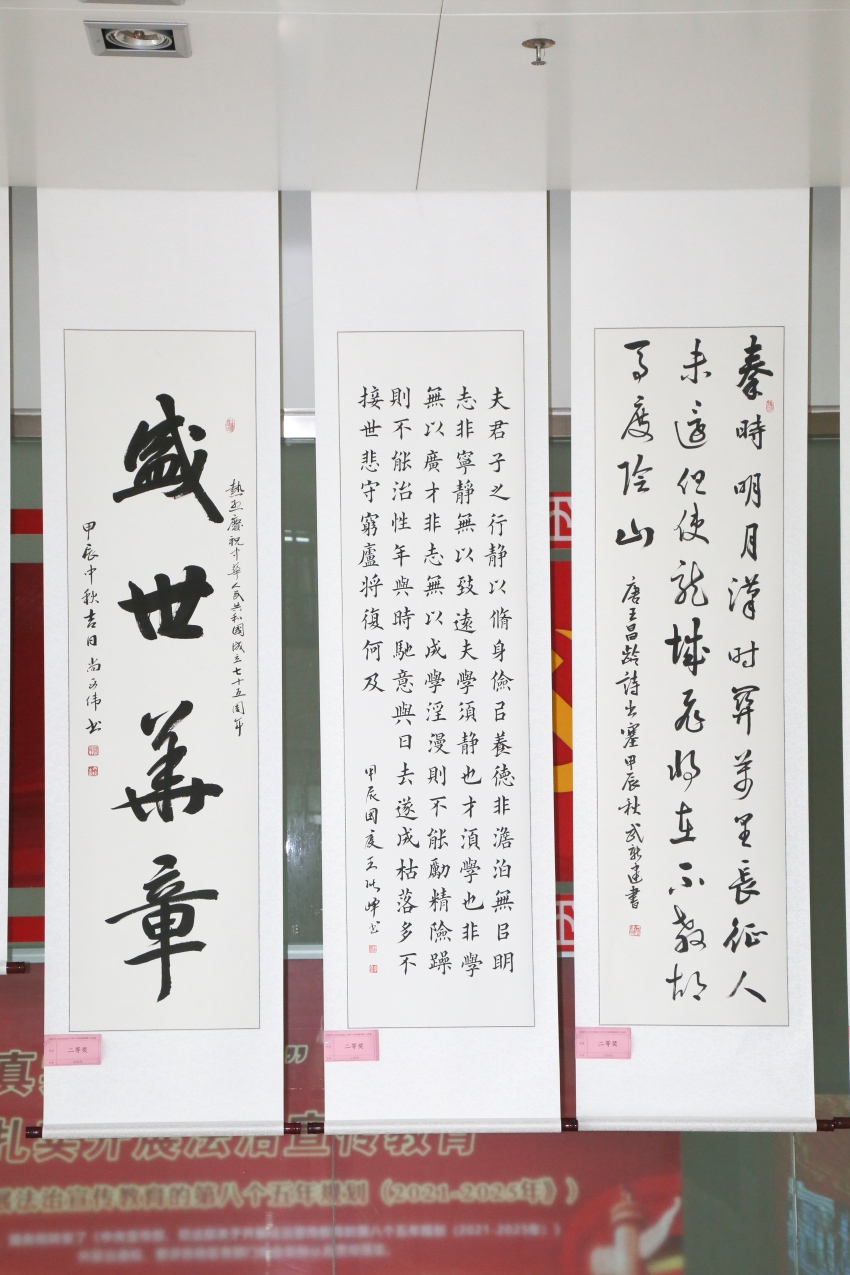 熱烈慶祝中華人民共和國成立七十五周年
盛世華章
甲辰中秋吉日尚伟书
二等奖
夫君子之行静以脩身儉㠯養德非澹泊無㠯明
志非寧静無以致遠夫學須静也才須學也非學
無以廣才非志無以成學淫漫則不能勵精險躁
則不能治性年與時馳意與日去遂成枯落多不
接世悲守窮廬将復何及
甲辰国庆王峰书
二等奖
秦時明月漢时關萬里長征人
未還但使龍城飛将在不教胡
馬度陰山
唐王昌龄詩出塞甲辰秋武新建書
二等奖
真”
扎实开展法治宣传教育
展法治宣传教育的第八个五年规划（2021-2025年）》）